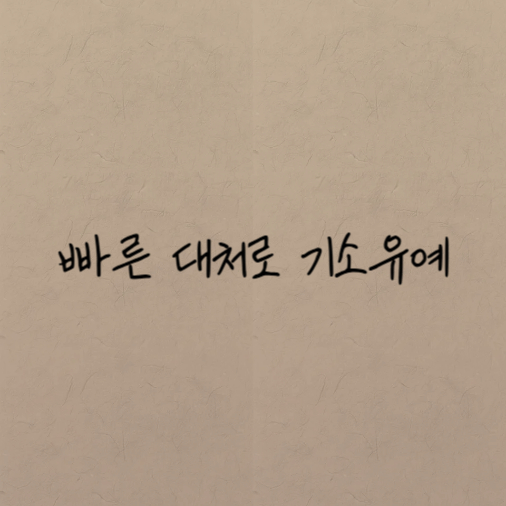 빠른 대처로 기소유예